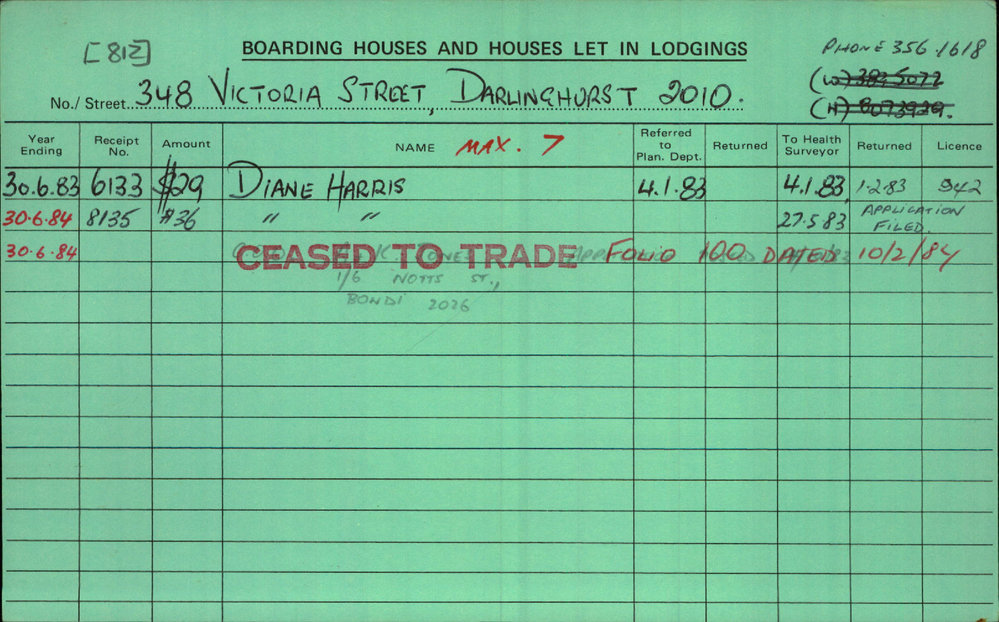 [812]
BOARDING HOUSES AND HOUSES LET IN LODGINGS
PHONE 356.1618
No./ Street. 348 VICTORIA STREET, DARLINGHURST 2010.
(W) 389 5077
(H) 8073939.
Year Ending Receipt No. Amount NAME MAX. 7 Referred to Plan. Dept. Returned To Health Surveyor Returned Licence
30.6.83 6133 $29 DIANE HARRIS 4.1.83 4.1.83 1.2.83 942
30.6.84 8135 $36 " " 27.5.83 APPLICATION FILED
30.6.84 CEASED TO TRADE FOLIO 100 DATED 10/2/84
1/6 NOTTS ST.,
BONDI 2026